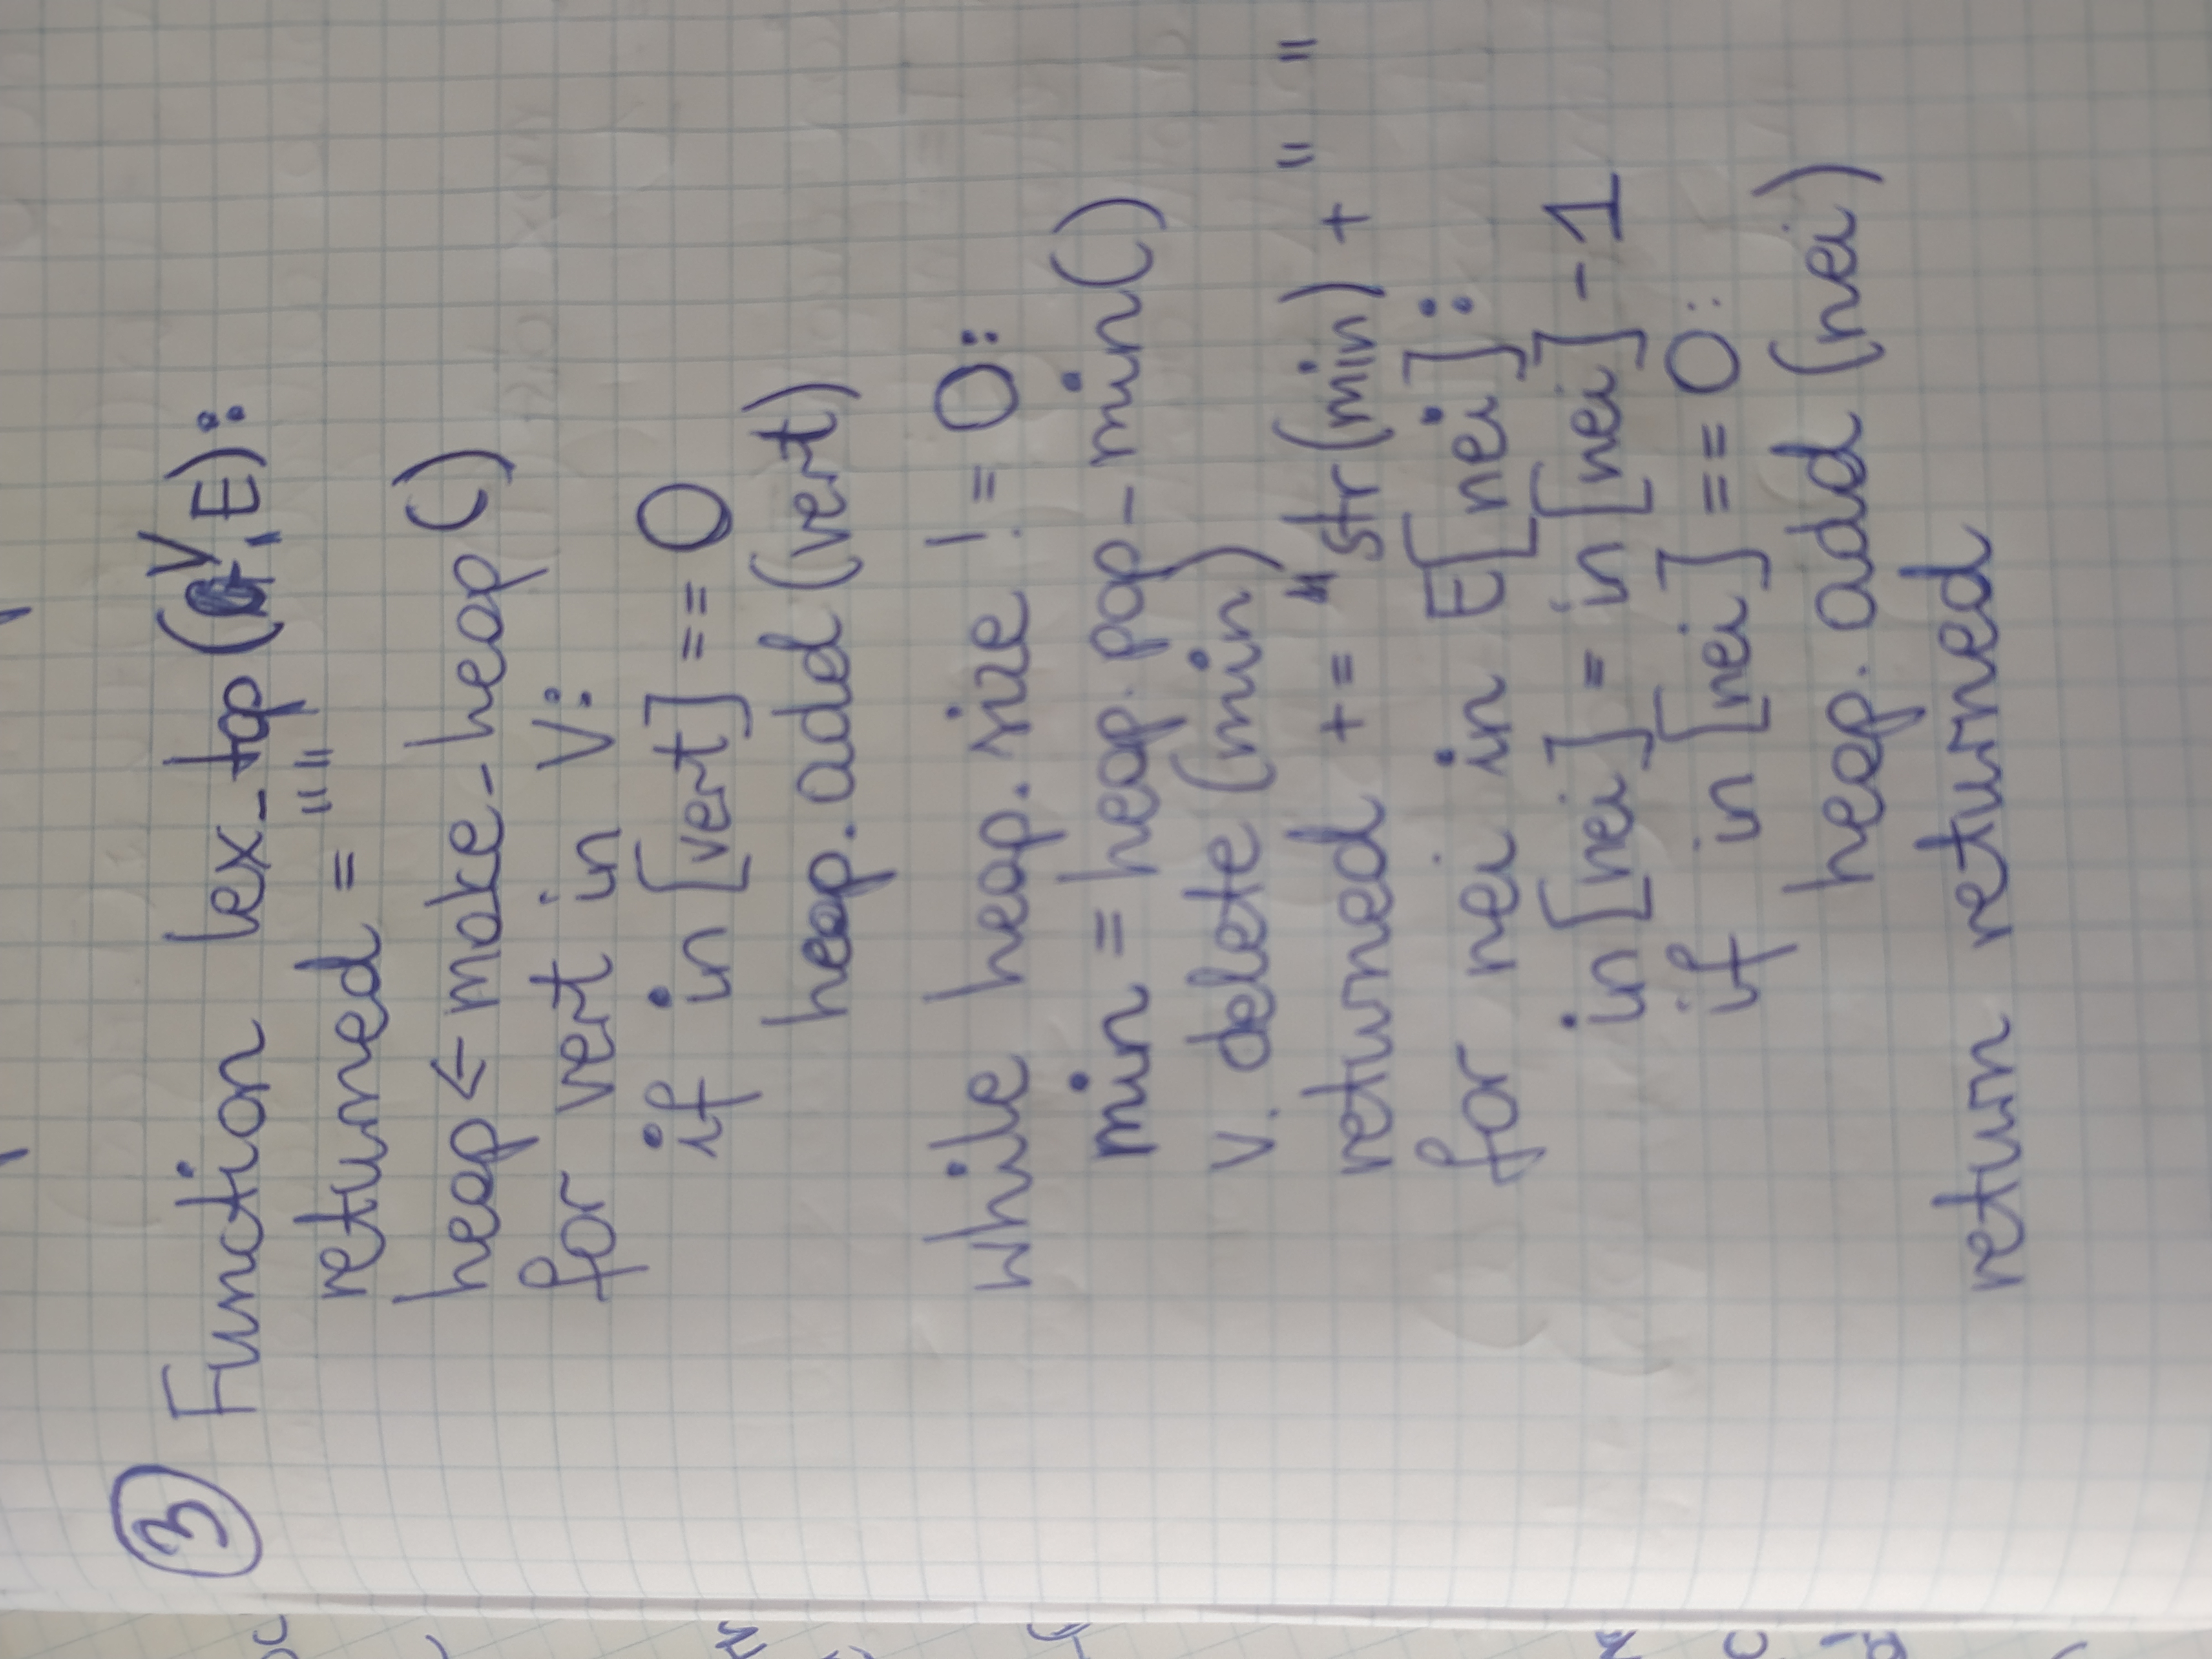 ③ Function lex_top(V,E):
returned = ""
heap ← make_heap()
for vert in V:
if in [vert] == 0
heap.add (vert)
while heap.size != 0:
min = heap.pop_min()
V.delete (min)
returned += str(min) + " "
for nei in E[nei]:
in [nei] = in [nei] -1
if in [nei] == 0:
heap.add (nei)
return returned